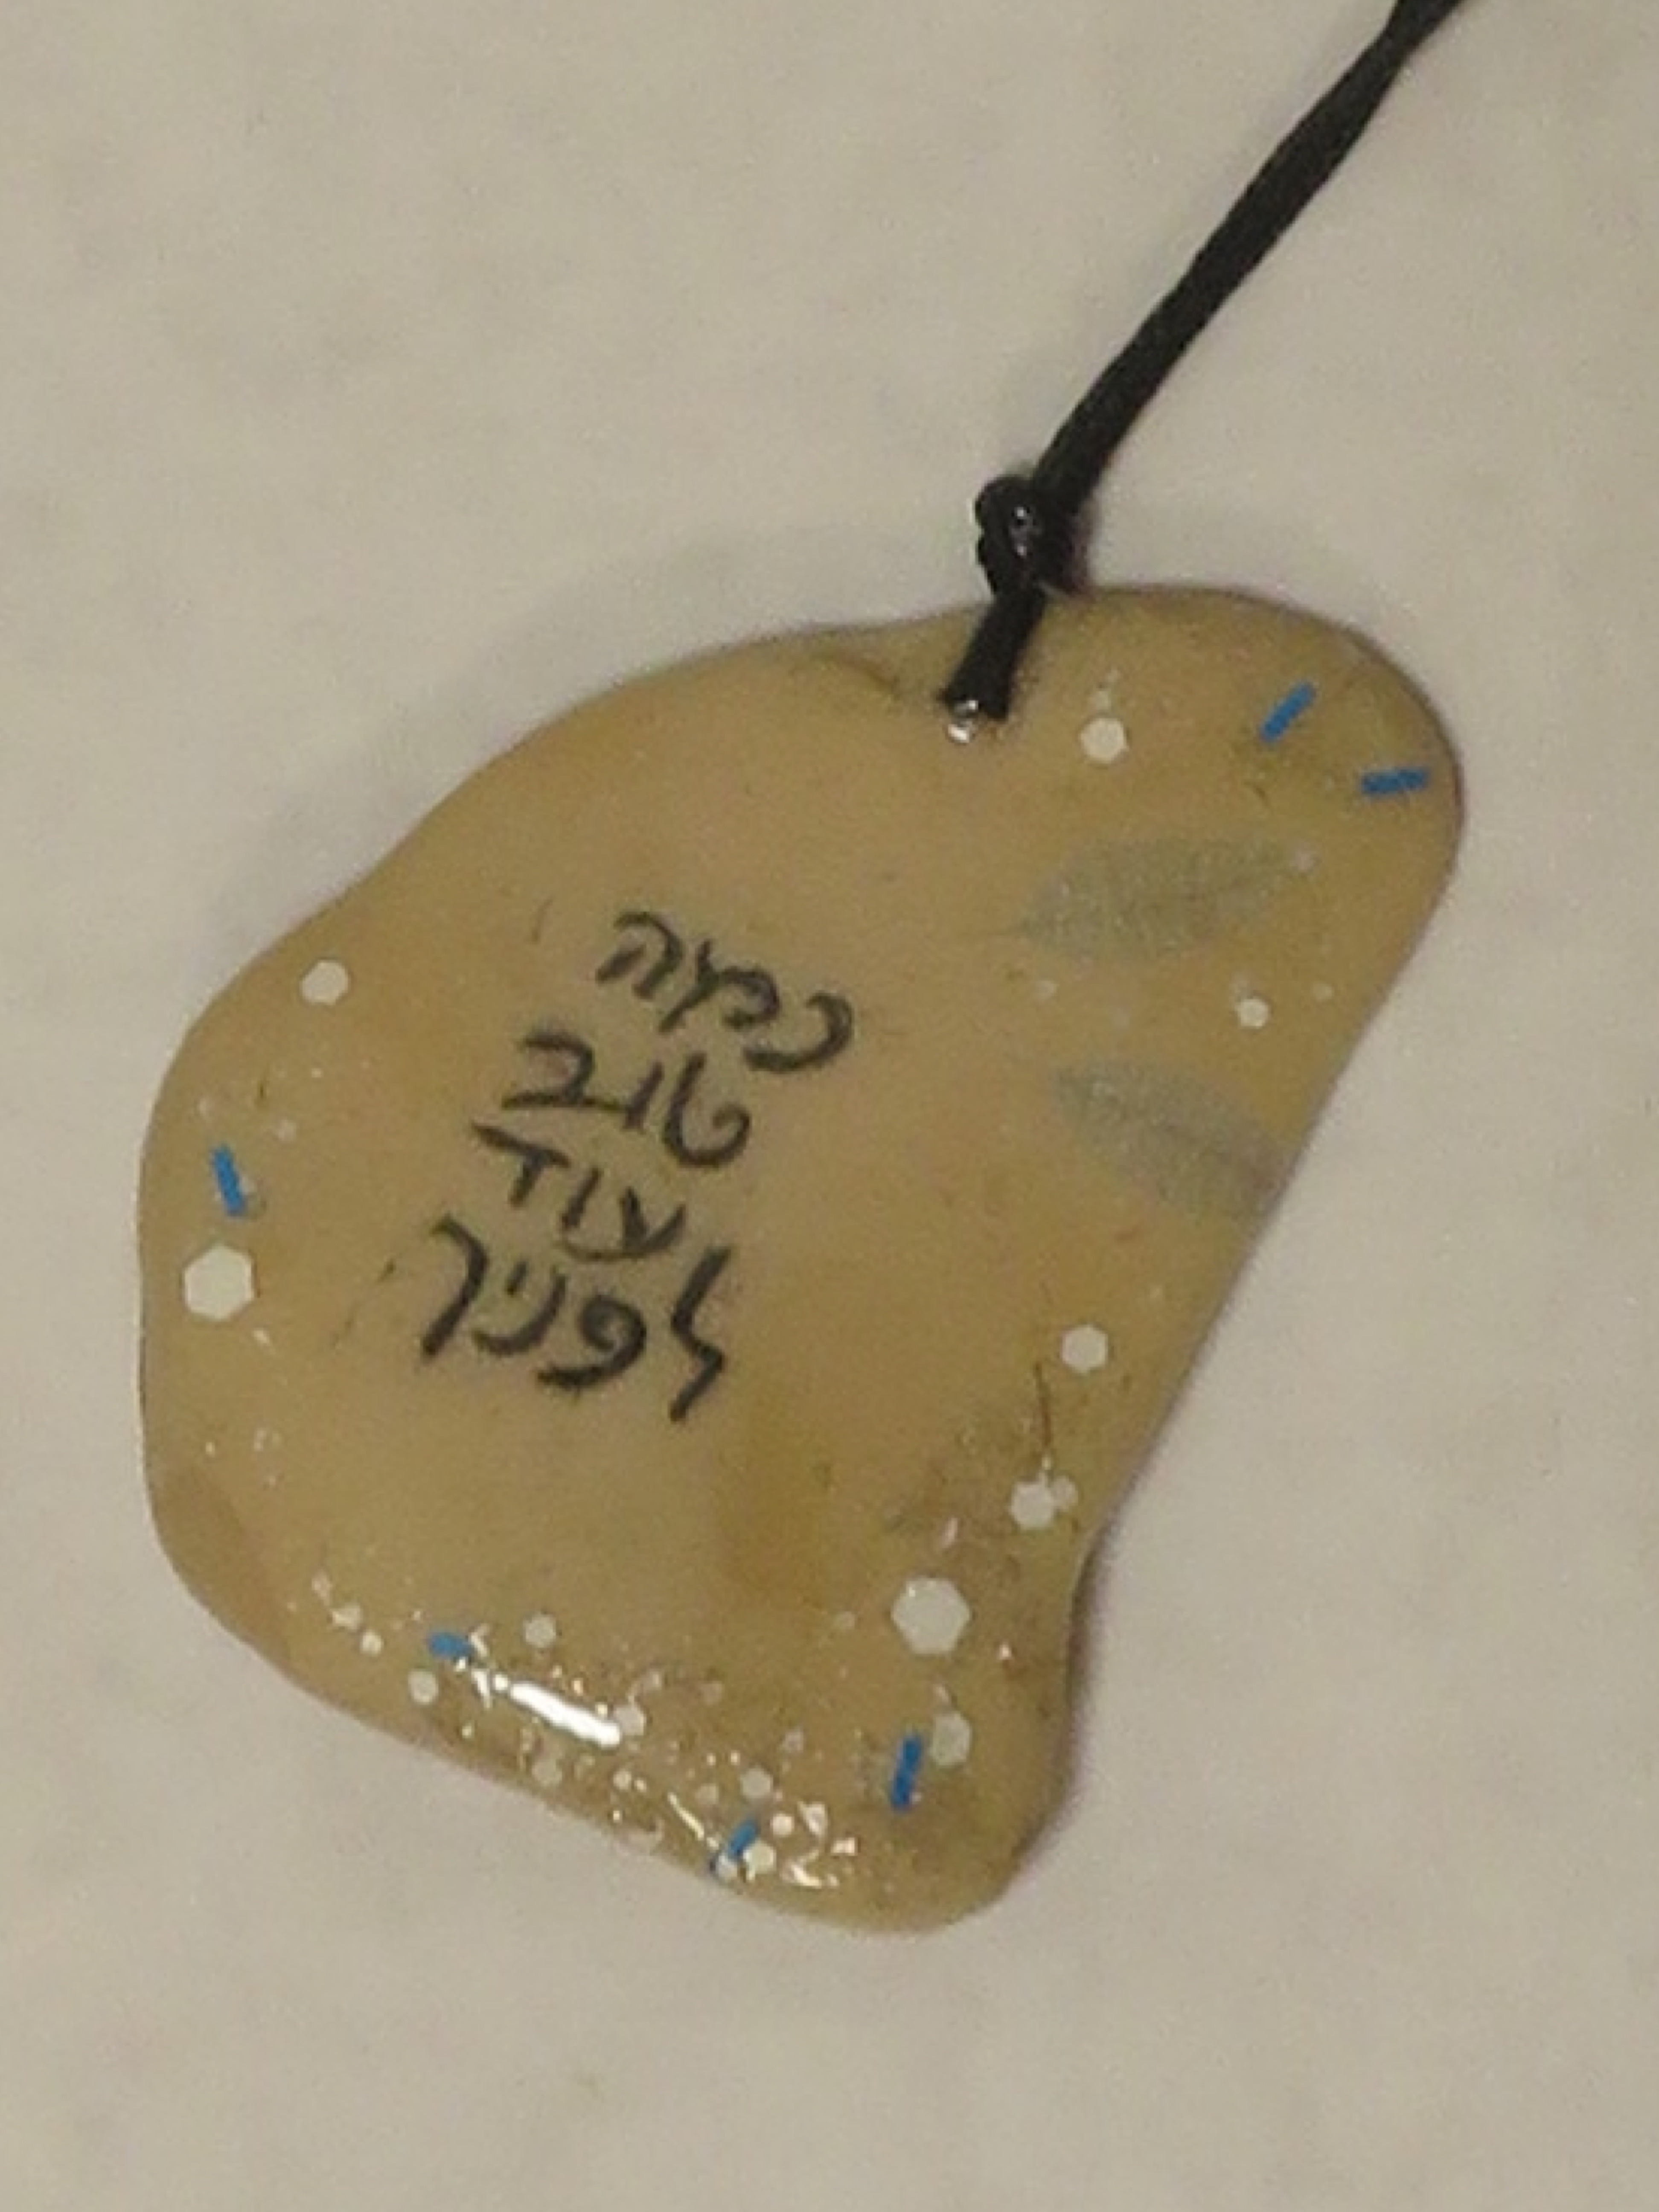 כמה
טוב
עוד
לפניך